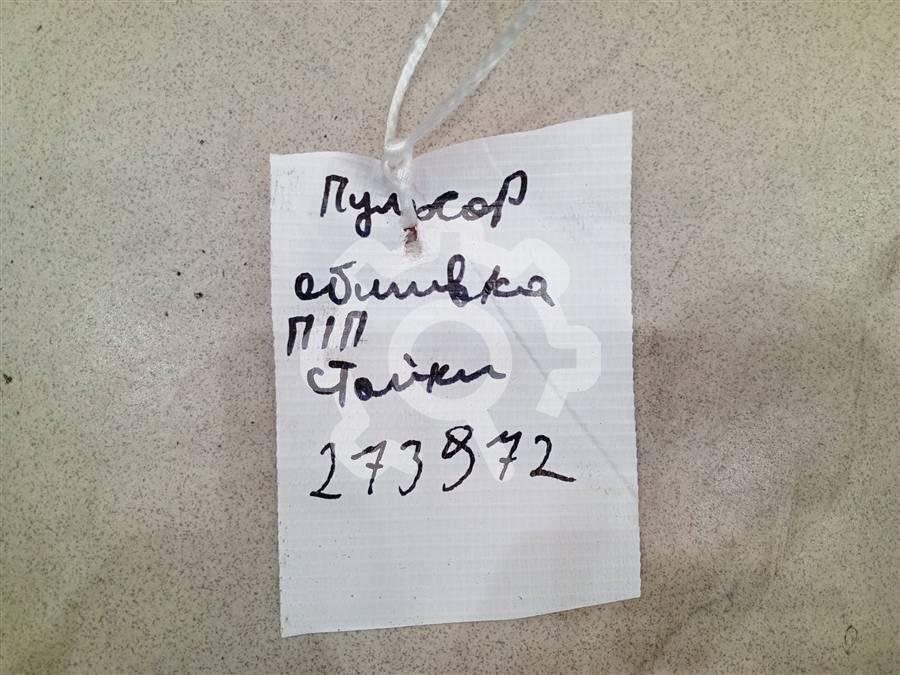 Пульсар
обшивка
П/П
стойки
273972